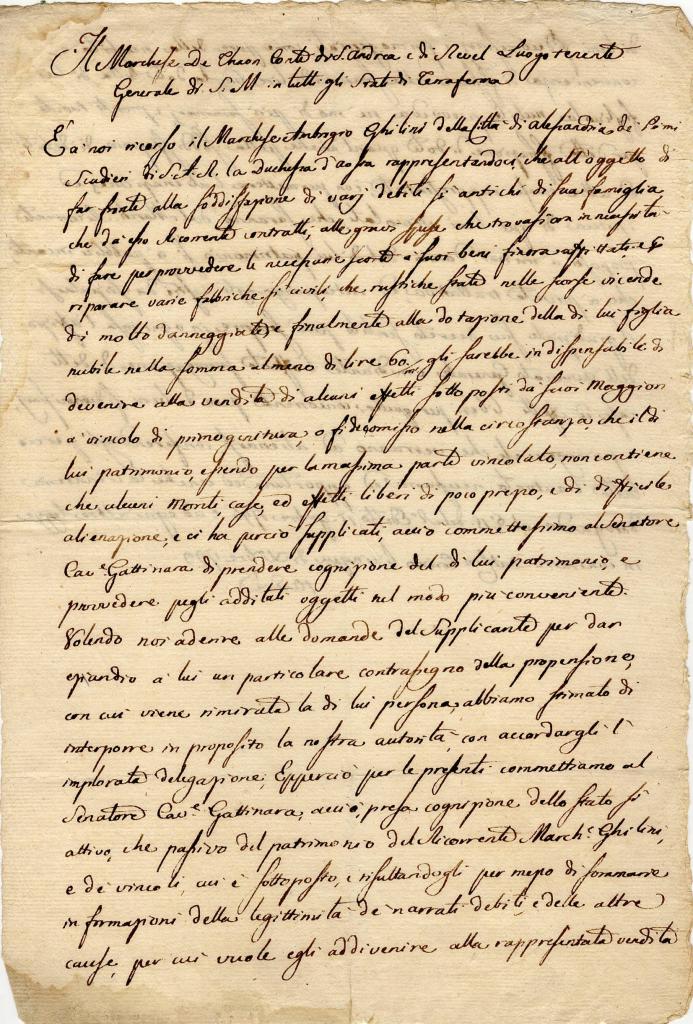 Il Marchese De Thaon Conte di S. Andrea e di Revel Luogotenente
Generale di S. M. in tutti gli Stati di Terraferma
È a noi ricorso il Marchese Ambrogio Ghilini della Città di Alessandria de' Primi
Scudieri di S. A. R. la Duchessa d'Aosta rappresentandoci, che all'oggetto di
far fronte alla soddisfazione di varj debiti sì antichi di sua famiglia
che da esso Ricorrente contratti, alle gravi spese che trovasi ora in necessità
di fare per provvedere le necessarie scorte a' suoi beni finora affittati, e
riparare varie fabbriche sì civili, che rustiche state nelle scorse vicende
di molto danneggiate, e finalmente alla dotazione della di lui figlia
nubile nella somma almeno di lire 60/m gli sarebbe indispensabile di
devenire alla vendita di alcuni effetti sottoposti da suoi Maggiori
a vincolo di primogenitura, o fidecomisso nella circostanza, che il di
lui patrimonio, essendo per la massima parte vincolato, non contiene
che alcuni Monti, case, ed effetti liberi di poco prezzo, e di difficile
alienazione, e ci ha perciò supplicati, acciò commettessimo al Senatore
Cav.e Gattinara di prendere cognizione del di lui patrimonio, e
provvedere pegli additati oggetti nel modo più conveniente.
Volendo noi aderire alle domande del Supplicante per dar
eziandio a lui un particolare contrassegno della propensione,
con cui viene rimirata la di lui persona, abbiamo stimato di
interporre in proposito la nostra autorità, con accordargli l'
implorata delegazione, Epperciò per le presenti commettiamo al
Senatore Cav.e Gattinara, acciò, presa cognizione dello stato sì
attivo, che passivo del patrimonio del Ricorrente March.e Ghilini,
e de' vincoli, cui è sottoposto, e risultandogli per mezzo di sommarie
informazioni della legittimità de' narrati debiti, e delle altre
cause, per cui vuole egli addivenire alla rappresentata vendita